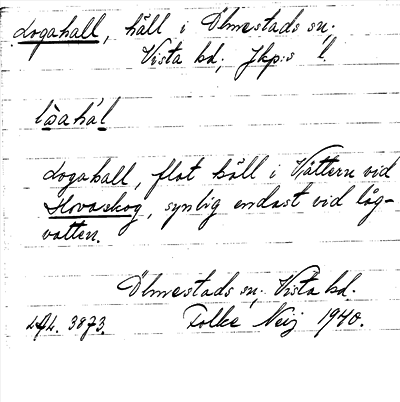 Logahall, häll i Ölmestads sn,
Vista hd, Jkp:s l.
lȯahál
Logahall, flat häll i Vättern vid
Hovaskog, synlig endast vid låg-
vatten.
Ölmestads sn, Vista hd.
3873. Folke Neij 1940.